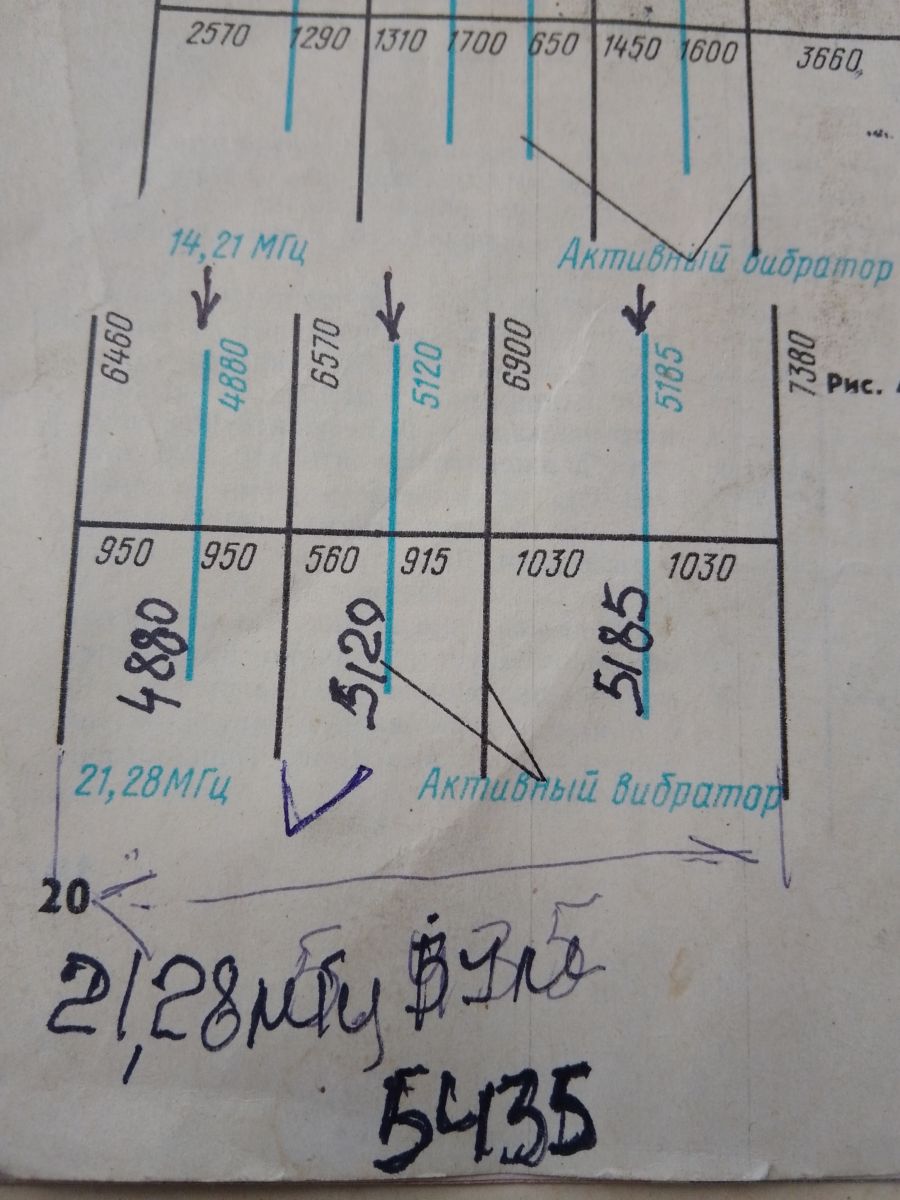 2570 1290 1310 1700 650 1450 1600 3660
14,21 МГц Активный вибратор
6460 4880 6570 5120 6900 5185 7380
Рис.
950 950 560 915 1030 1030
4880 5120 5185
21,28 МГц Активный вибратор
20
21,28 мгц
5435